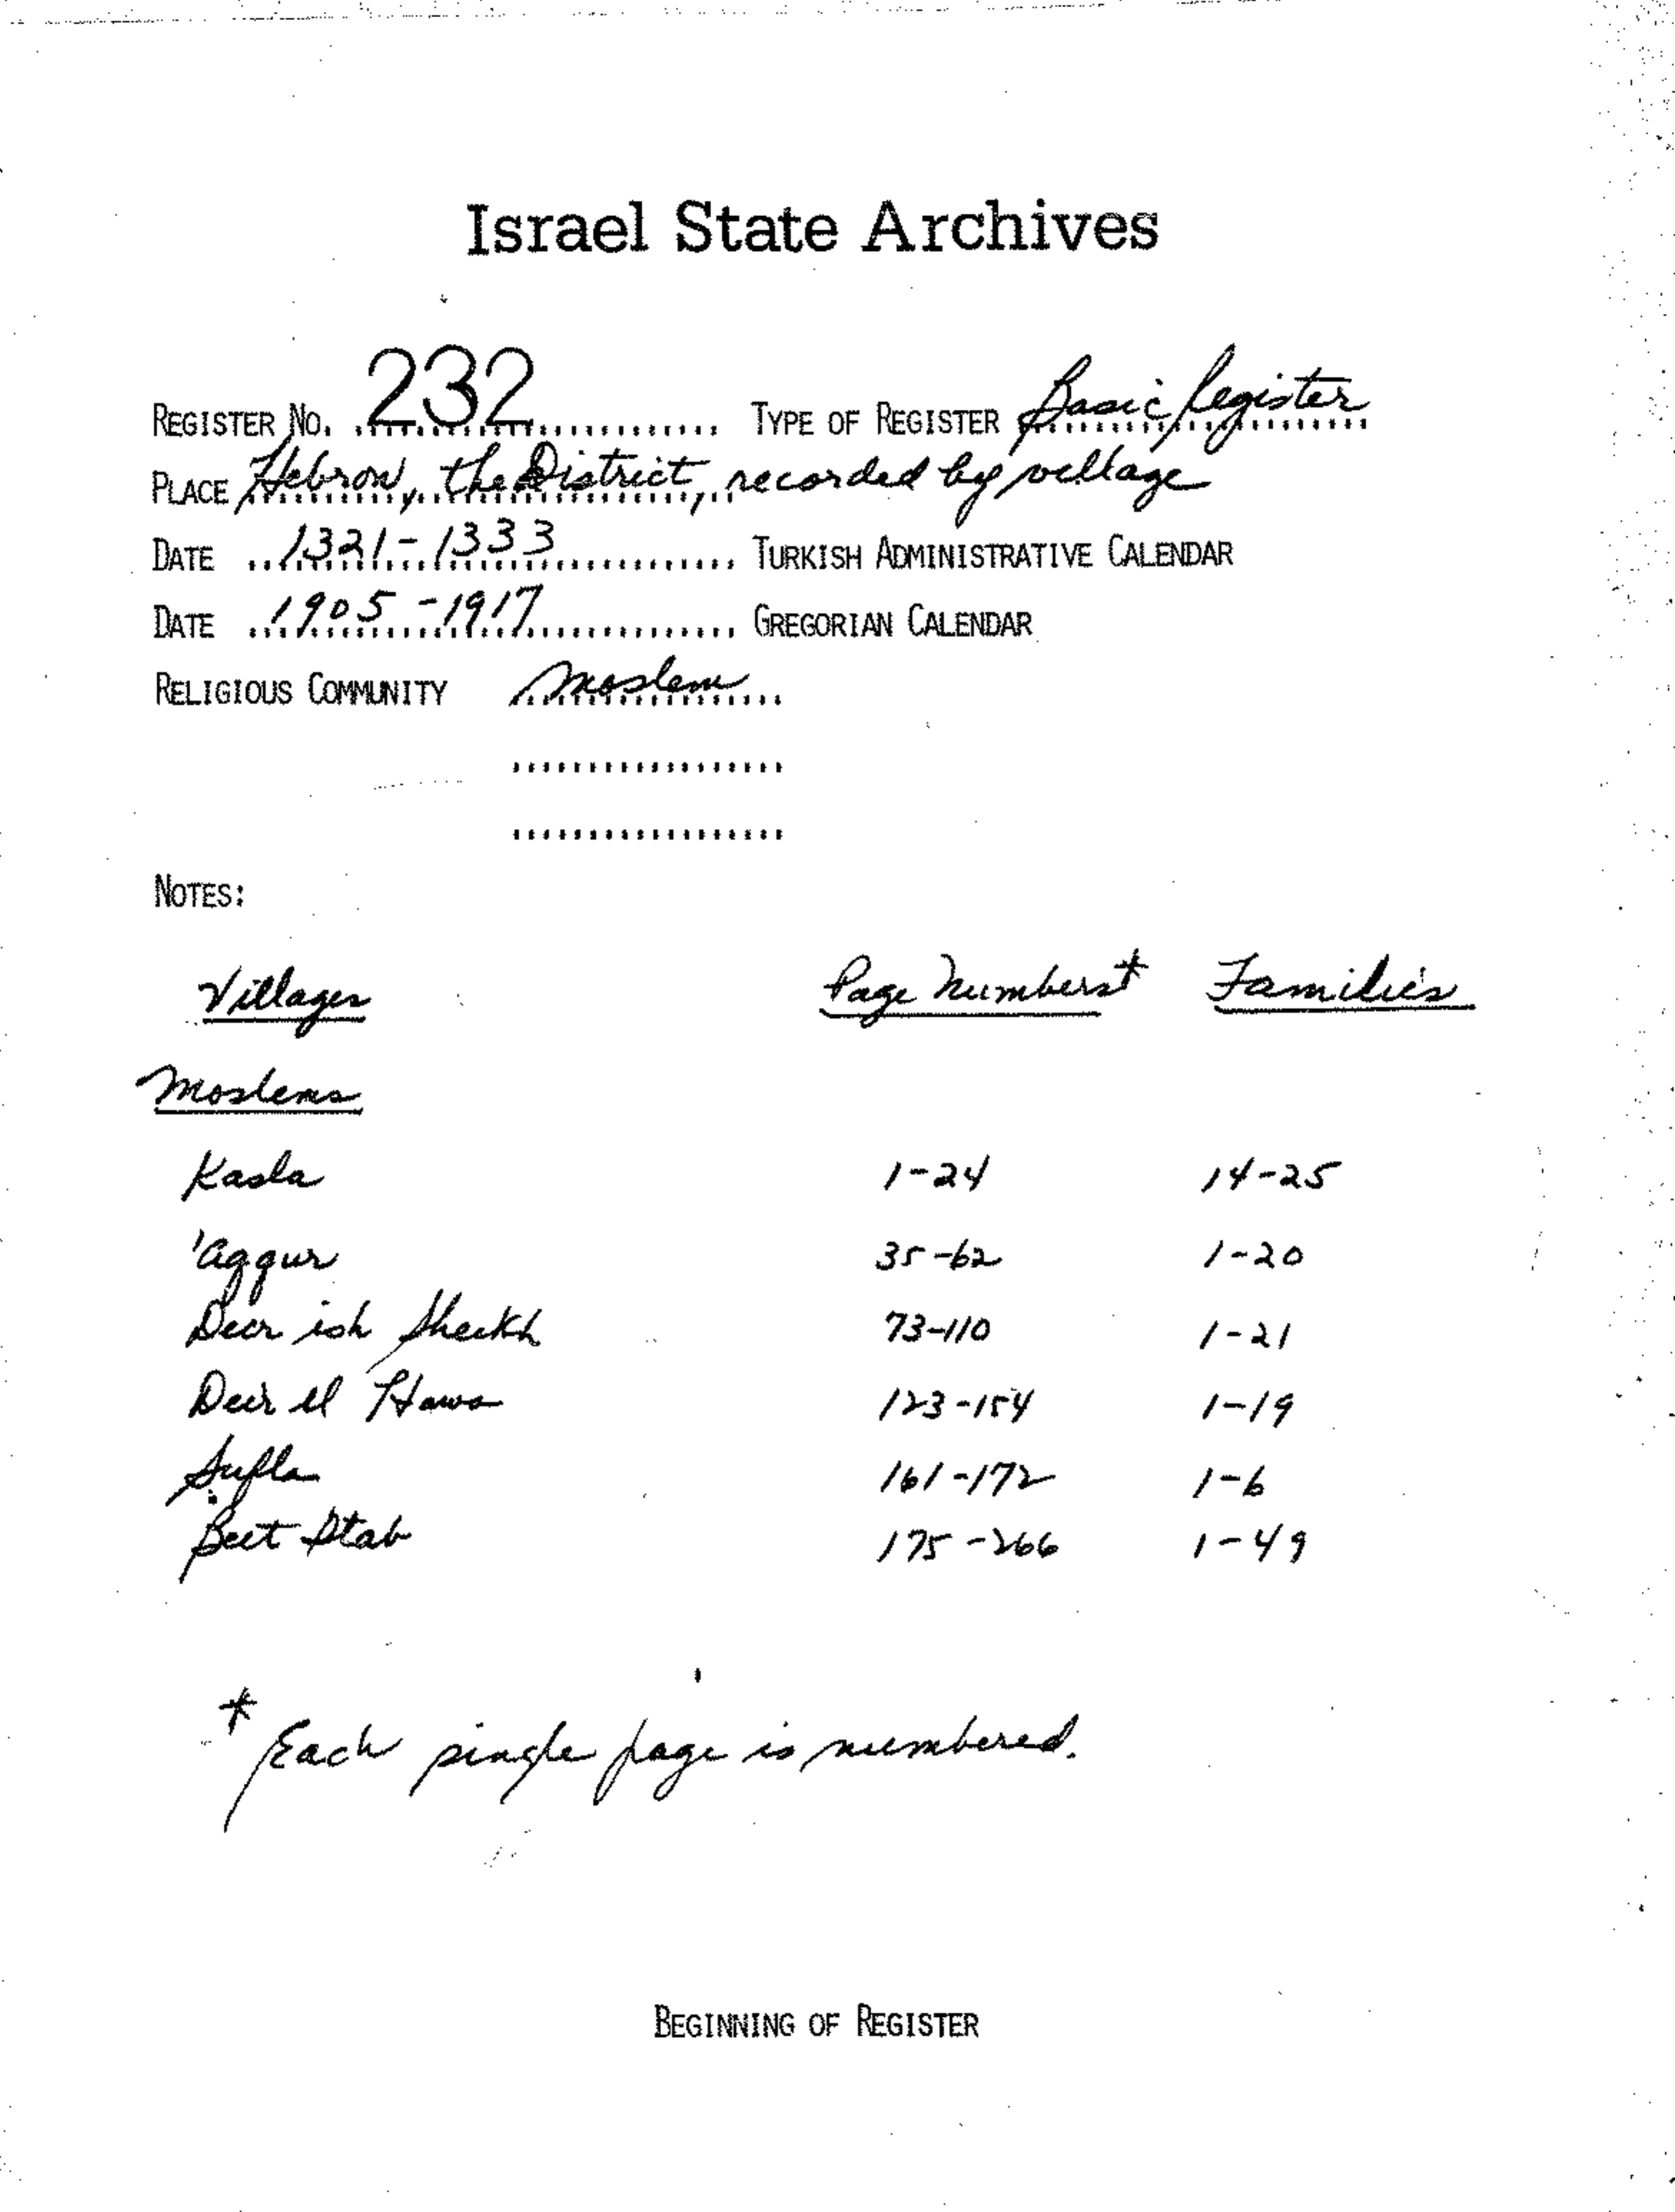 Israel State Archives
REGISTER NO. 232 TYPE OF REGISTER Basic Register
PLACE Hebron, the District, recorded by village
DATE 1321-1333 TURKISH ADMINISTRATIVE CALENDAR
DATE 1905-1917 GREGORIAN CALENDAR
RELIGIOUS COMMUNITY Moslem
NOTES:
Villages Page Numbers* Families
Moslems
Kasla 1-24 14-25
'Aggur 35-62 1-20
Deir ish Sheikh 73-110 1-21
Deir el Hawa 123-154 1-19
Sufla 161-172 1-6
Beit Itab 175-266 1-49
* Each single page is numbered.
BEGINNING OF REGISTER